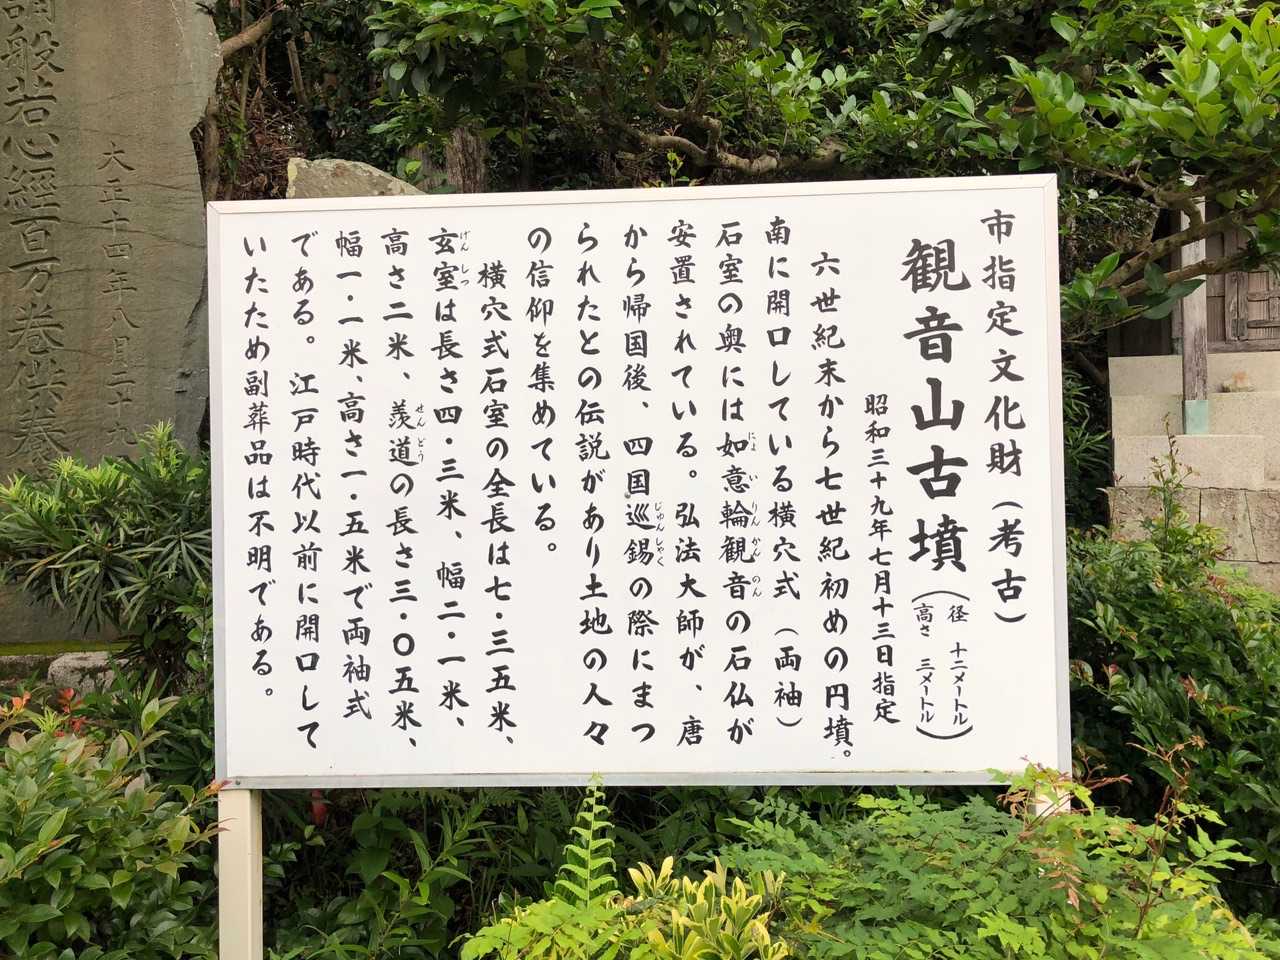 市指定文化財（考古）
観音山古墳（径 十二メートル
高さ 三メートル）
昭和三十九年七月十三日指定
六世紀末から七世紀初めの円墳。
南に開口している横穴式（両袖）
石室の奥には如意輪観音の石仏が
にょ い りん かん のん
安置されている。弘法大師が、唐
から帰国後、四国巡錫の際にまつ
じゅんしゃく
られたとの伝説があり土地の人々
の信仰を集めている。
横穴式石室の全長は七・三五米、
玄室は長さ四・三米、幅二・一米、
げん しつ
高さ二米、羨道の長さ三・〇五米、
せん どう
幅一・一米、高さ一・五米で両袖式
である。江戸時代以前に開口して
いたため副葬品は不明である。
大正十四年八月二十九
誦般若心經百万巻供養